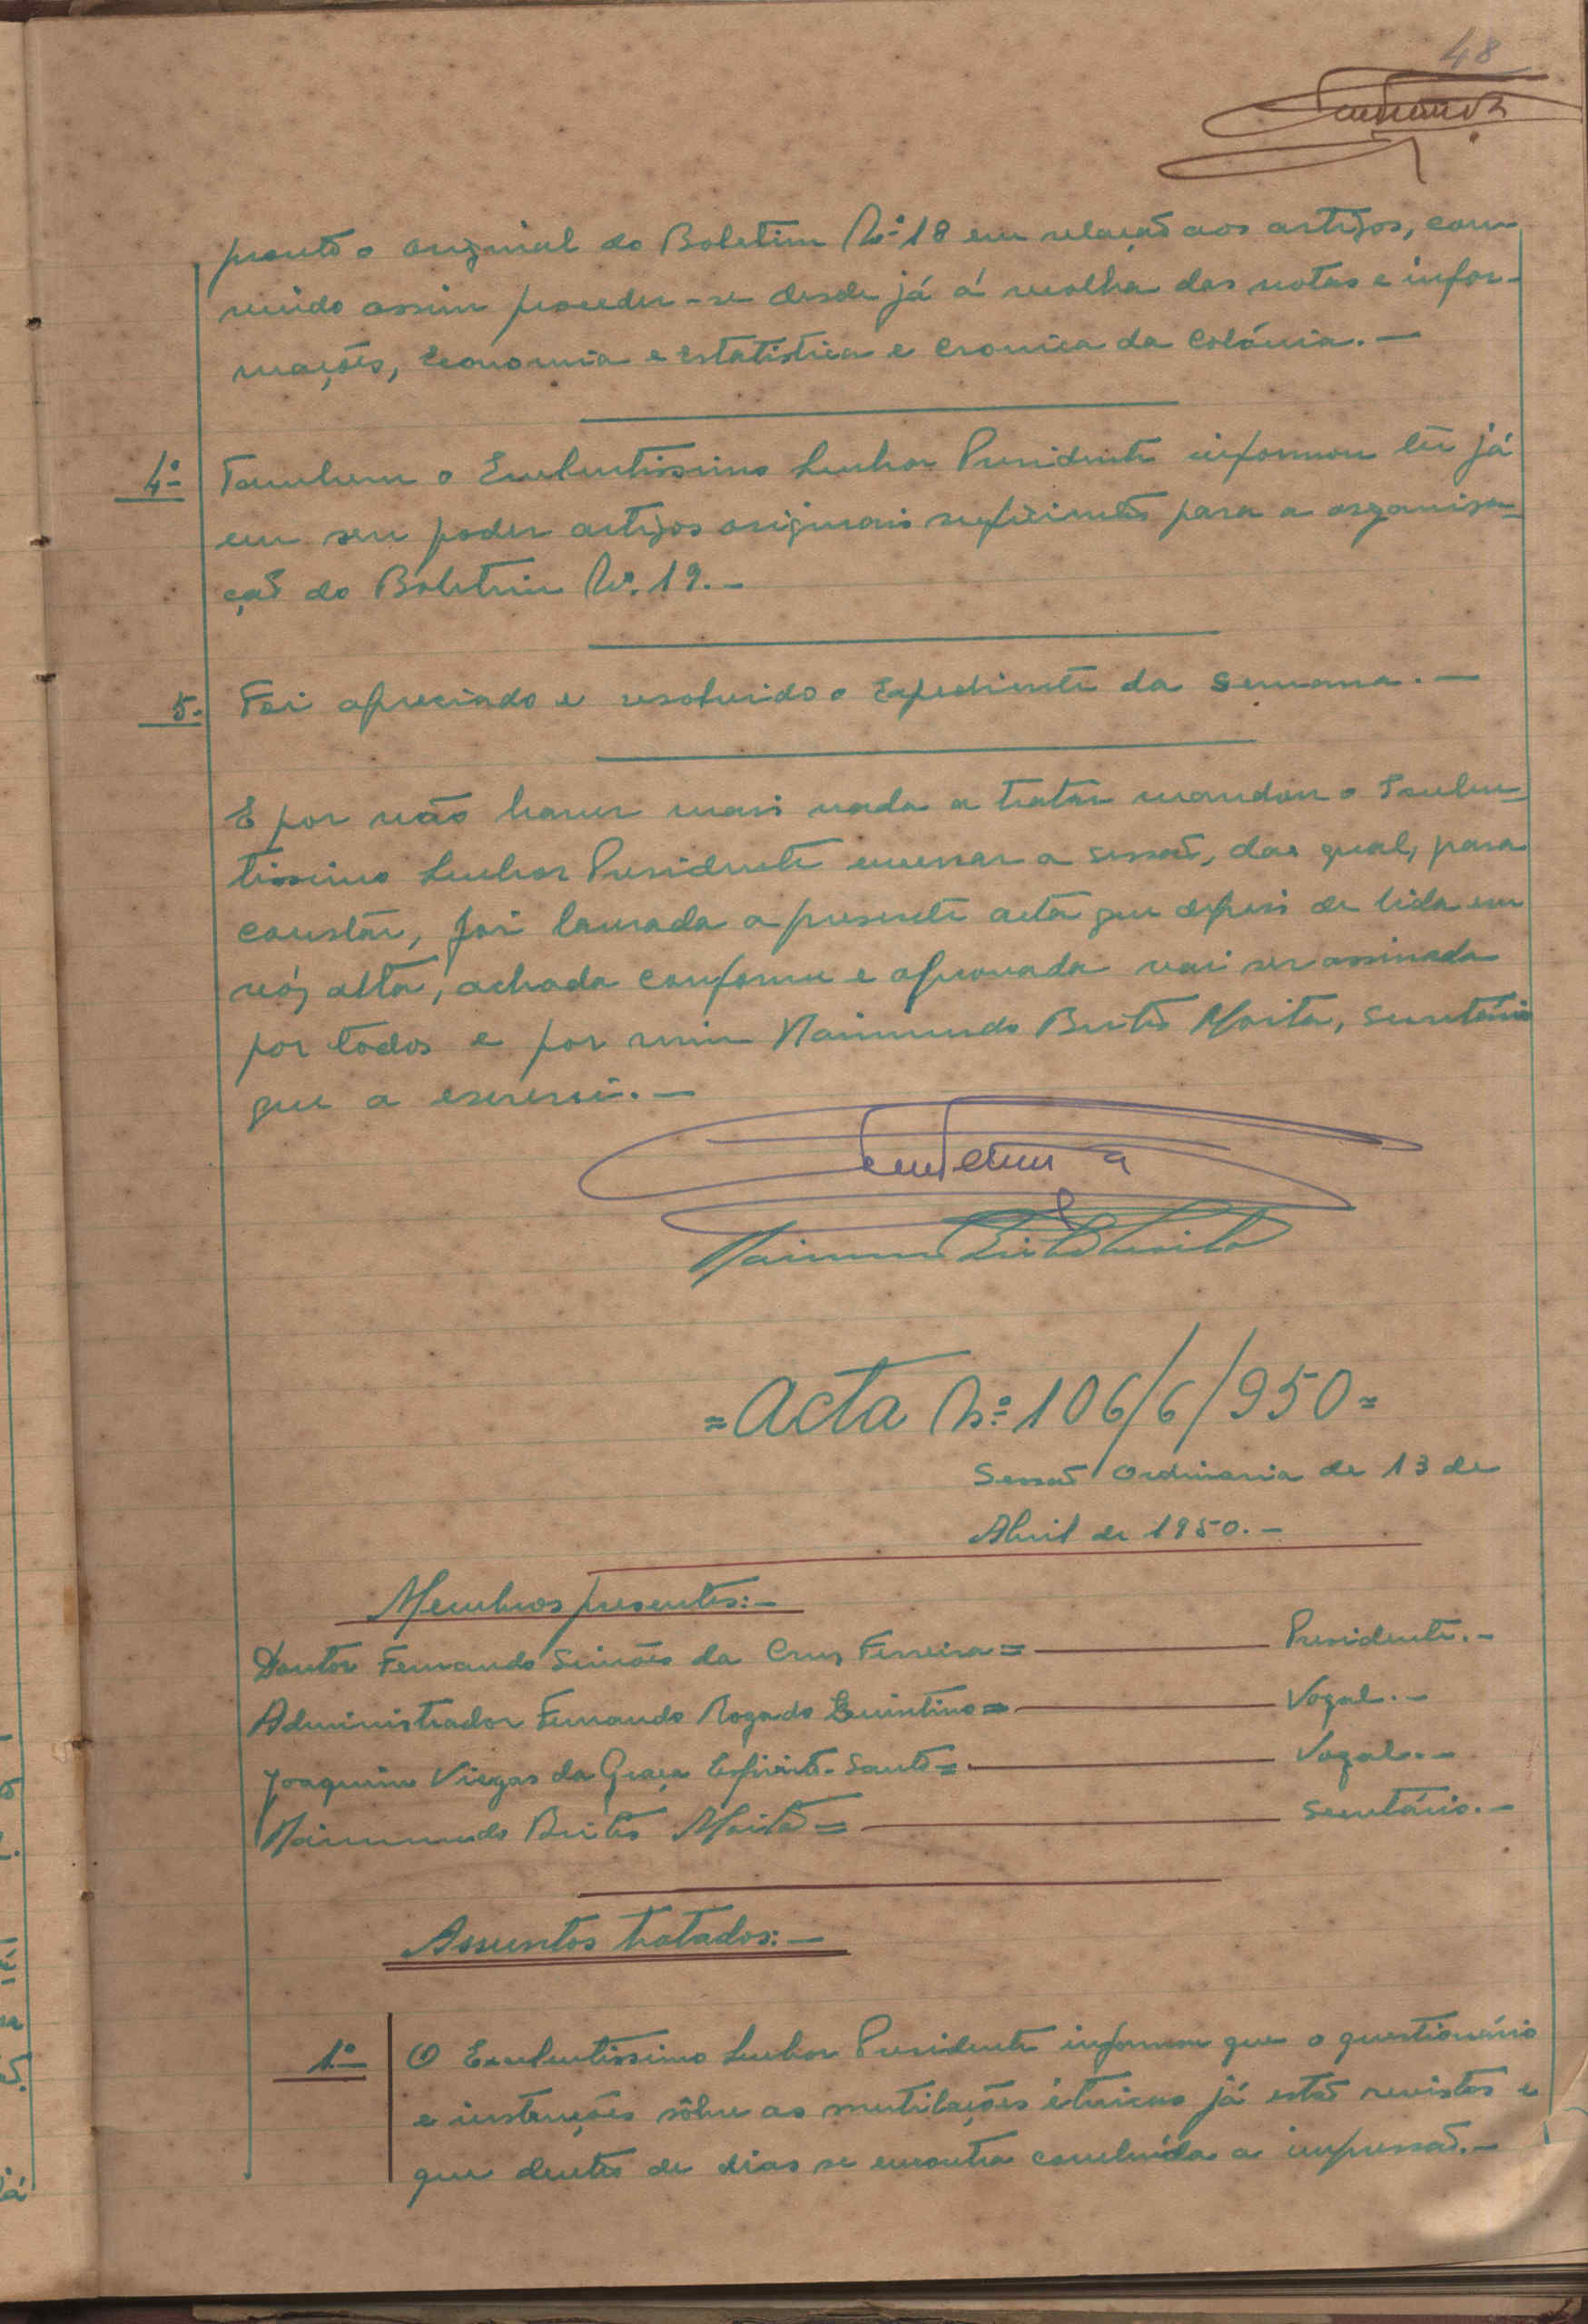 48
pronto o original do Boletim Nº 18 em relação aos artigos, con-
vindo assim proceder-se desde já á recolha das notas e infor-
mações, Economia e Estatistica e Cronica da Colónia.-
4º Tambem o Excelentissimo Senhor Presidente informou ter já
em seu poder artigos originais suficientes para a organisa-
ção do Boletim Nº. 19.-
5. Foi apreciado e resolvido o Expediente da Semana.-
E por não haver mais nada a tratar mandou o Excelen-
tissimo Senhor Presidente encerrar a sessão, da qual, para
constar, foi lavrada a presente acta que depois de lida em
vós alta, achada conforme e aprovada vai ser assinada
por todos e por mim Raimundo Brito Moita, Secretário
que a escrevi.-
=Acta Nº 106/6/950=
Sessão Ordinaria de 13 de
Abril de 1950.-
Membros presentes:-
Doutor Fernando Simões da Cruz Ferreira= Presidente.-
Administrador Fernando Rogado Quintino= Vogal.-
Joaquim Viegas da Graça Espirito-Santo= Vogal.-
Raimundo Brito Moita= Secretário.-
Assuntos tratados:-
1º O Excelentissimo Senhor Presidente informou que o questionário
e instruções sôbre as mutilações étnicas já estão revistos e
que dentro de dias se encontra concluída a impressão.-